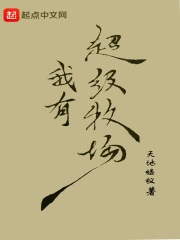 起点中文网
我有
超级牧场
天 蝼蚁 著